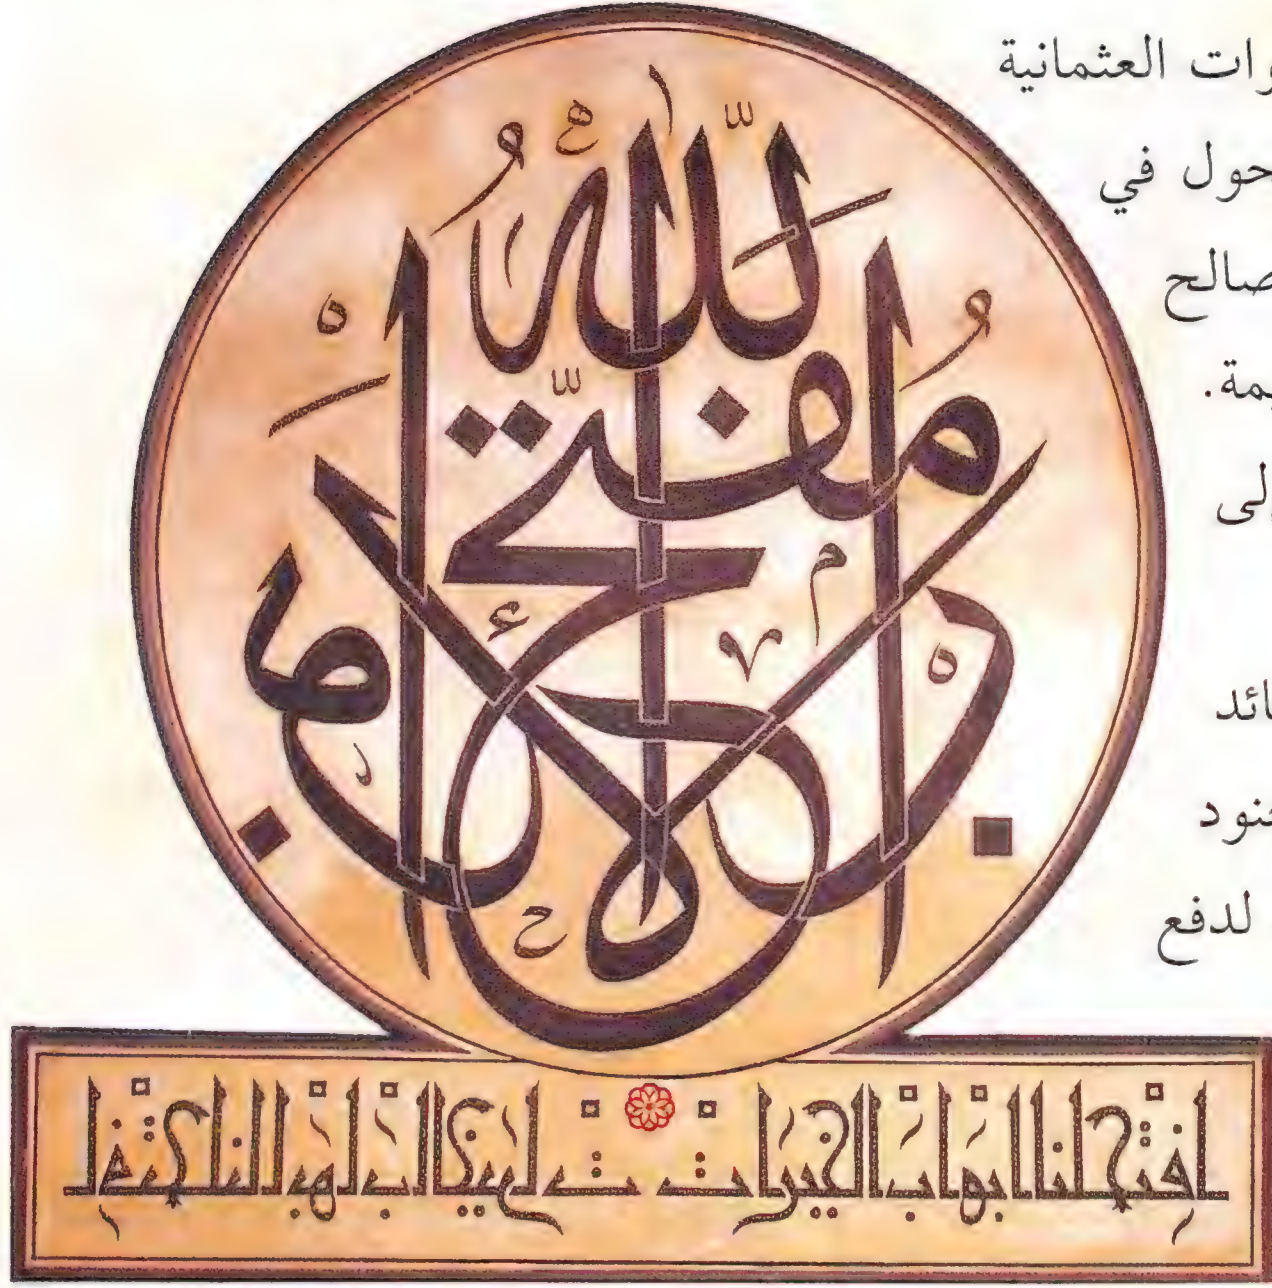 رات العثمانية
حول في
صالح
يمة.
لى
ائد
نود
لدفع
الله مفتح الأبواب
افتح لنا ابواب الخيرات